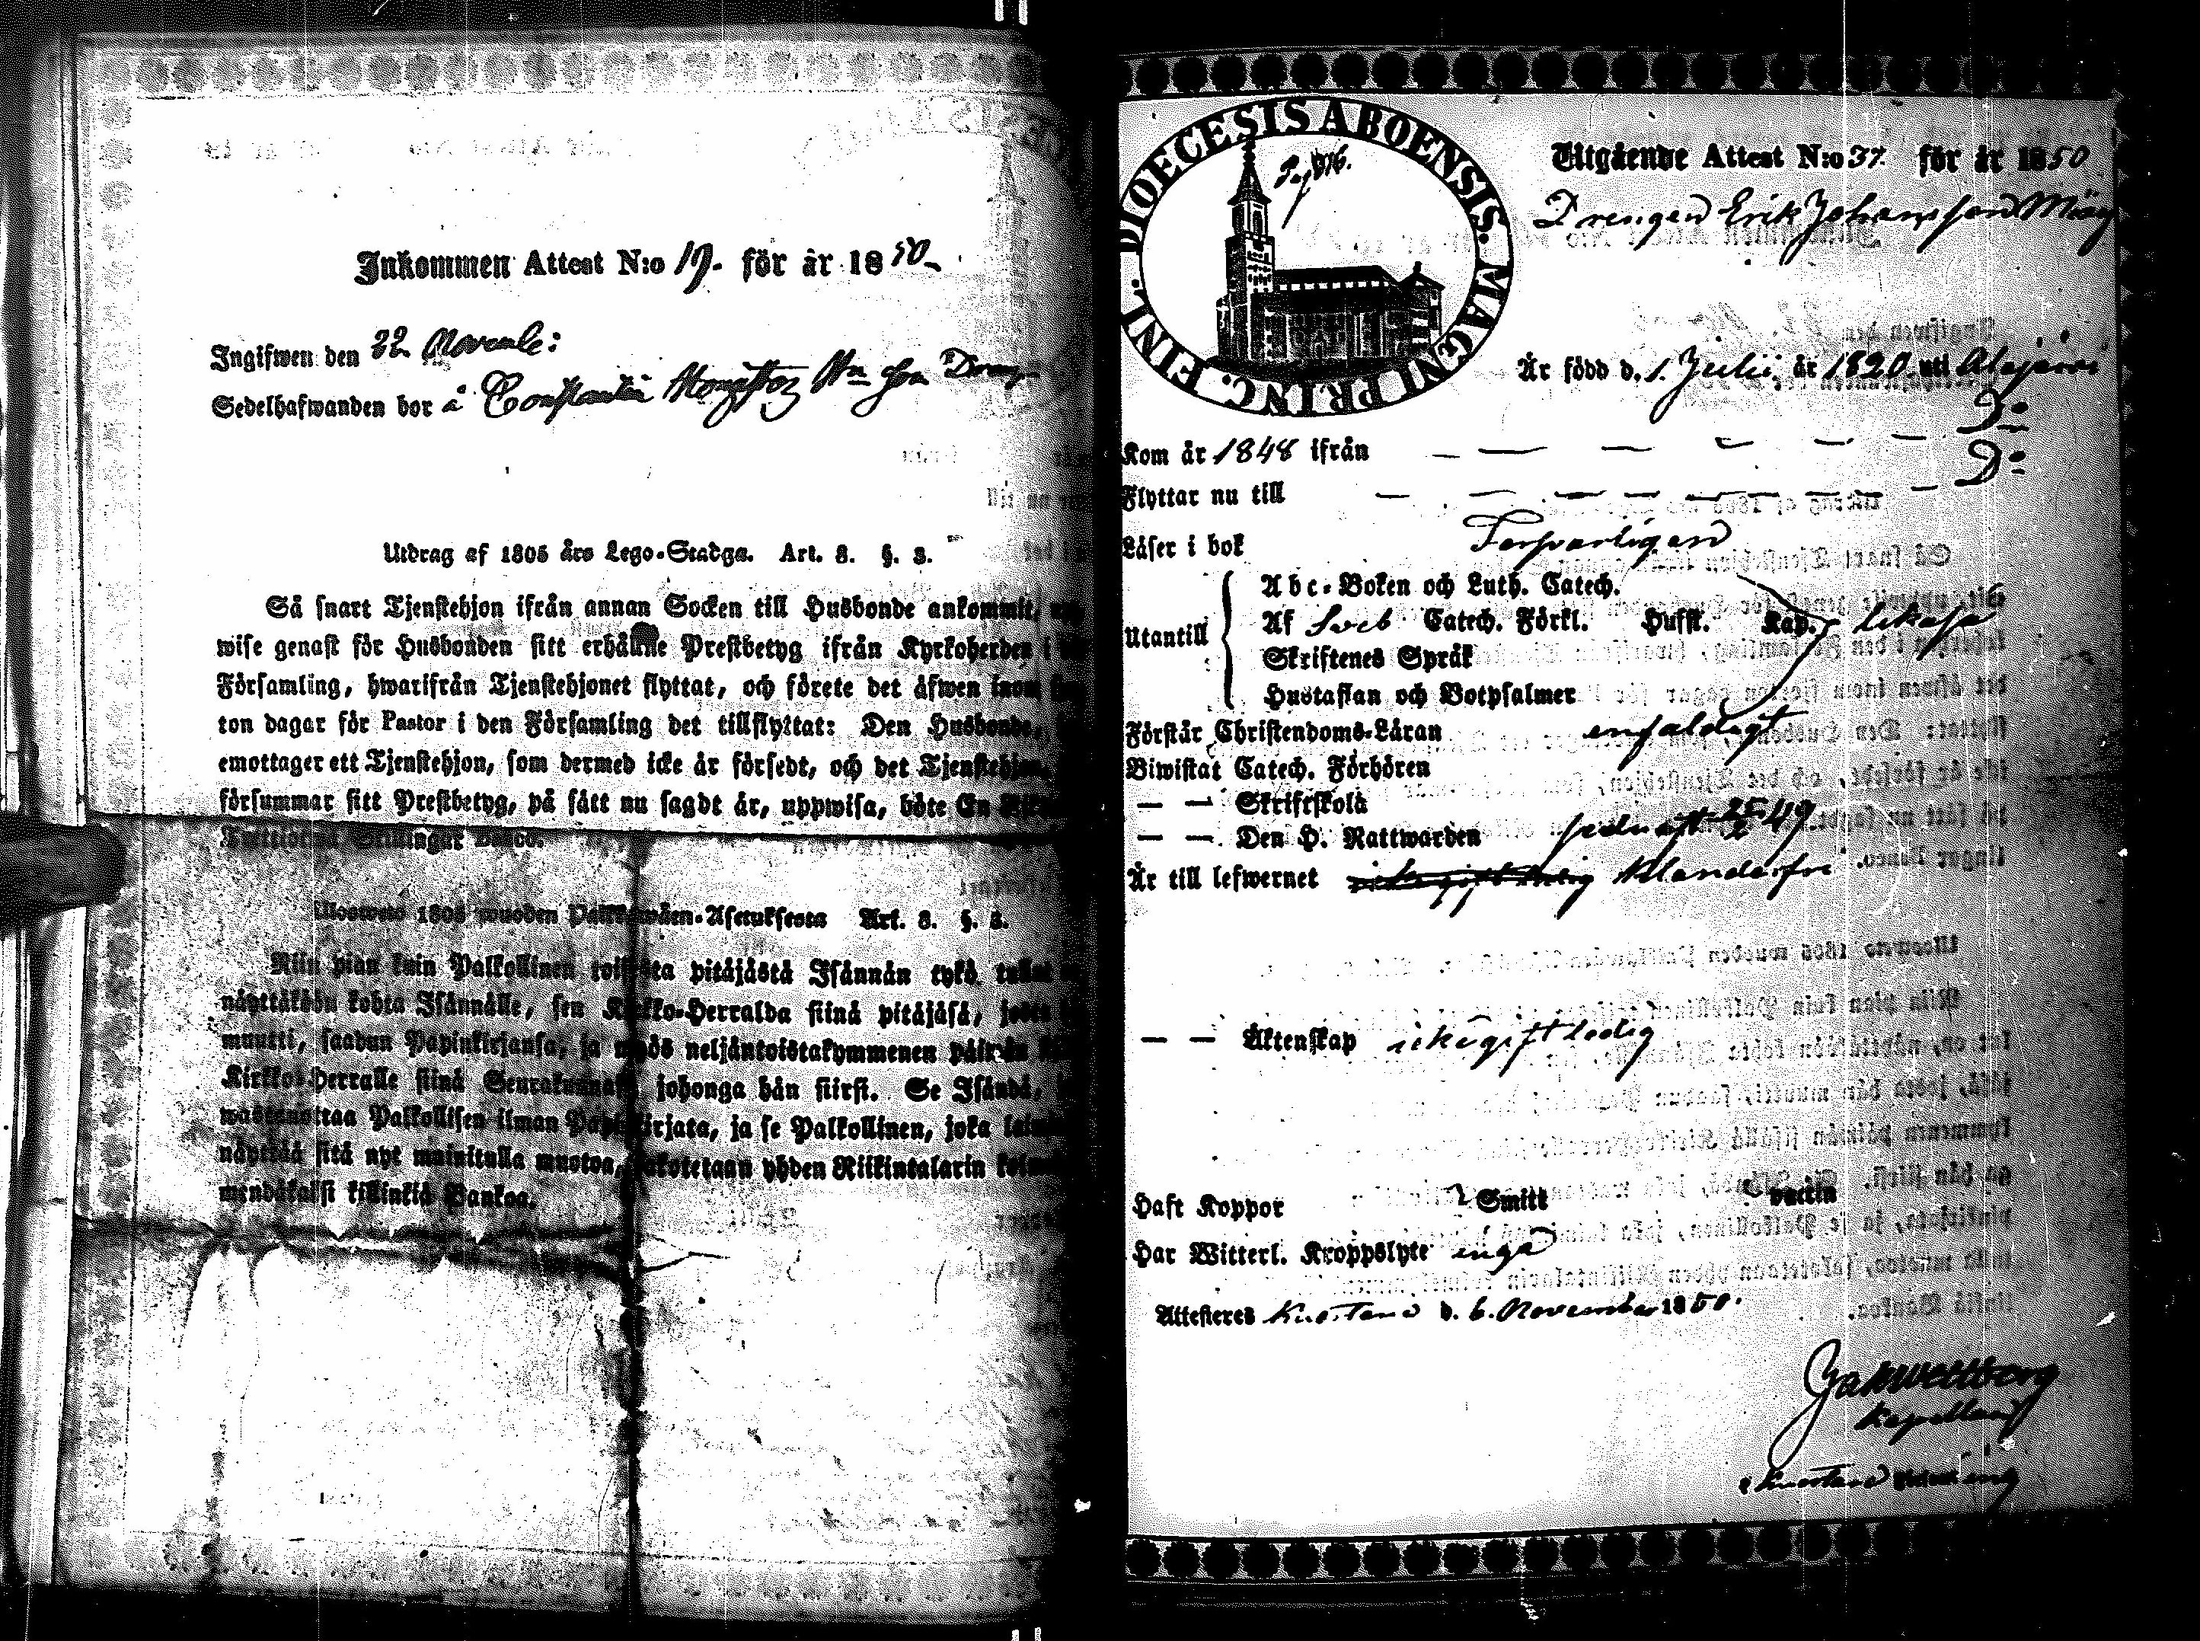 Inkommen Attest N:o 19. för år 1850
Ingifwen den 22 Novemb:
Sedelhafwanden bor å
Utdrag af 1805 års Lego-Stadga. Art. 3. §. 3.
Så snart Tjenstehjon ifrån annan Socken till Husbonde ankommit,
wise genast för Husbonden sitt erhållne Prestbetyg ifrån Kyrkoherden i
Församling, hwarifrån Tjenstehjonet flyttat, och förete det äfwen inom
ton dagar för Pastor i den Församling det tillflyttat: Den Husbonde,
emottager ett Tjenstehjon, som dermed icke är försedt, och det Tjenstehjon,
försummar sitt Prestbetyg, på sätt nu sagdt är, uppwisa, böte En
1805 wuoden Art. 3. §. 3.
Niin pian kuin Palkollinen toisesta pitäjästä Isännän tykö
näyttäköön kohta Isännälle, sen Kirkko-Herralda siinä pitäjäsä, josta
muutti, saadun Papinkirjansa, ja myös neljäntoistakymmenen päiwän
Kirkko-Herralle siinä Seurakunnasa johonga hän siirsi. Se Isändä,
wastanottaa Palkollisen ilman Papinkirjata, ja se Palkollinen, joka
näyttää sitä nyt mainitulla muotoa, sakotetaan yhden Riikintalarin
killinkiä Bankoa.
DIOECESIS ABOENSIS. MAGNI PRINC. FINL.
Utgående Attest N:o 37. för år 1850
Drengen Erik Johansson
Är född d. 1. Julii år 1820 uti Alajärvi
Kom år 1848 ifrån — — — — — D:o
Flyttar nu till — — — — — — — D:o
Läser i bok
Utantill
Abc-Boken och Luth. Catech.
Af Sveb Catech. Förkl. Hufst. Kap. likaså
Skriftenes Språk
Hustaflan och Botpsalmer
Förstår Christendoms-Läran enfaldigt
Biwistat Catech. Förhören
— — Skriftskola
— — Den H. Nattwarden sednast 25/2 49
Är till lefwernet klanderfri
— — Äktenskap icke gift ledig
Haft Koppor ? Smitt vaccin
Har Witterl. Kroppslyte inga
Attesteres Kuortane d. 6. November 1850.